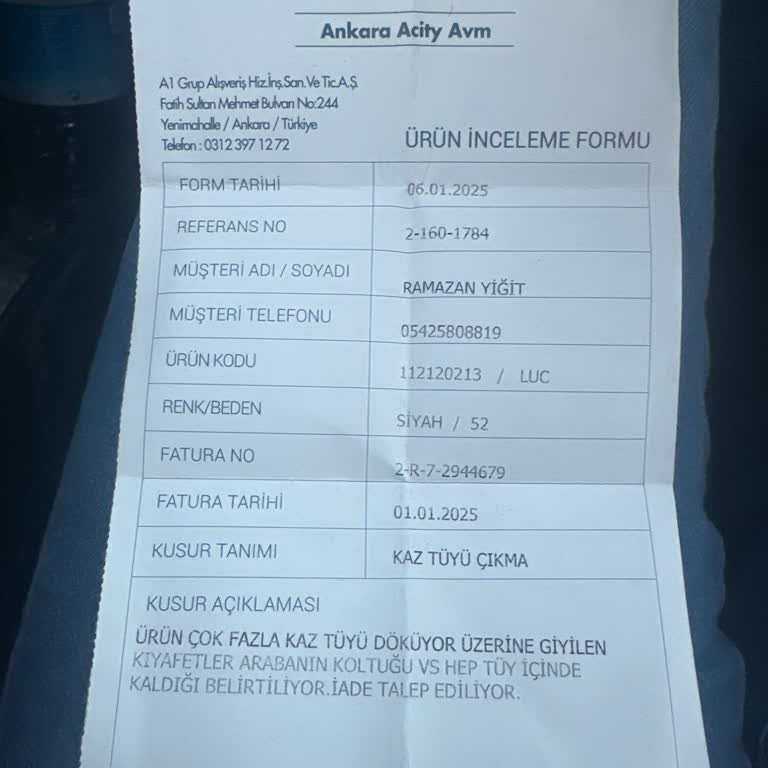 Ankara Acity Avm
A1 Grup Alışveriş Hiz.İnş.San.Ve Tic.A.Ş.
Fatih Sultan Mehmet Bulvarı No:244
Yenimahalle / Ankara / Türkiye
Telefon : 0312 397 12 72
ÜRÜN İNCELEME FORMU
FORM TARİHİ 06.01.2025
REFERANS NO 2-160-1784
MÜŞTERİ ADI / SOYADI RAMAZAN YİĞİT
MÜŞTERİ TELEFONU 05425808819
ÜRÜN KODU 112120213 / LUC
RENK/BEDEN SİYAH / 52
FATURA NO 2-R-7-2944679
FATURA TARİHİ 01.01.2025
KUSUR TANIMI KAZ TÜYÜ ÇIKMA
KUSUR AÇIKLAMASI
ÜRÜN ÇOK FAZLA KAZ TÜYÜ DÖKÜYOR ÜZERİNE GİYİLEN
KIYAFETLER ARABANIN KOLTUĞU VS HEP TÜY İÇİNDE
KALDIĞI BELİRTİLİYOR.İADE TALEP EDİLİYOR.